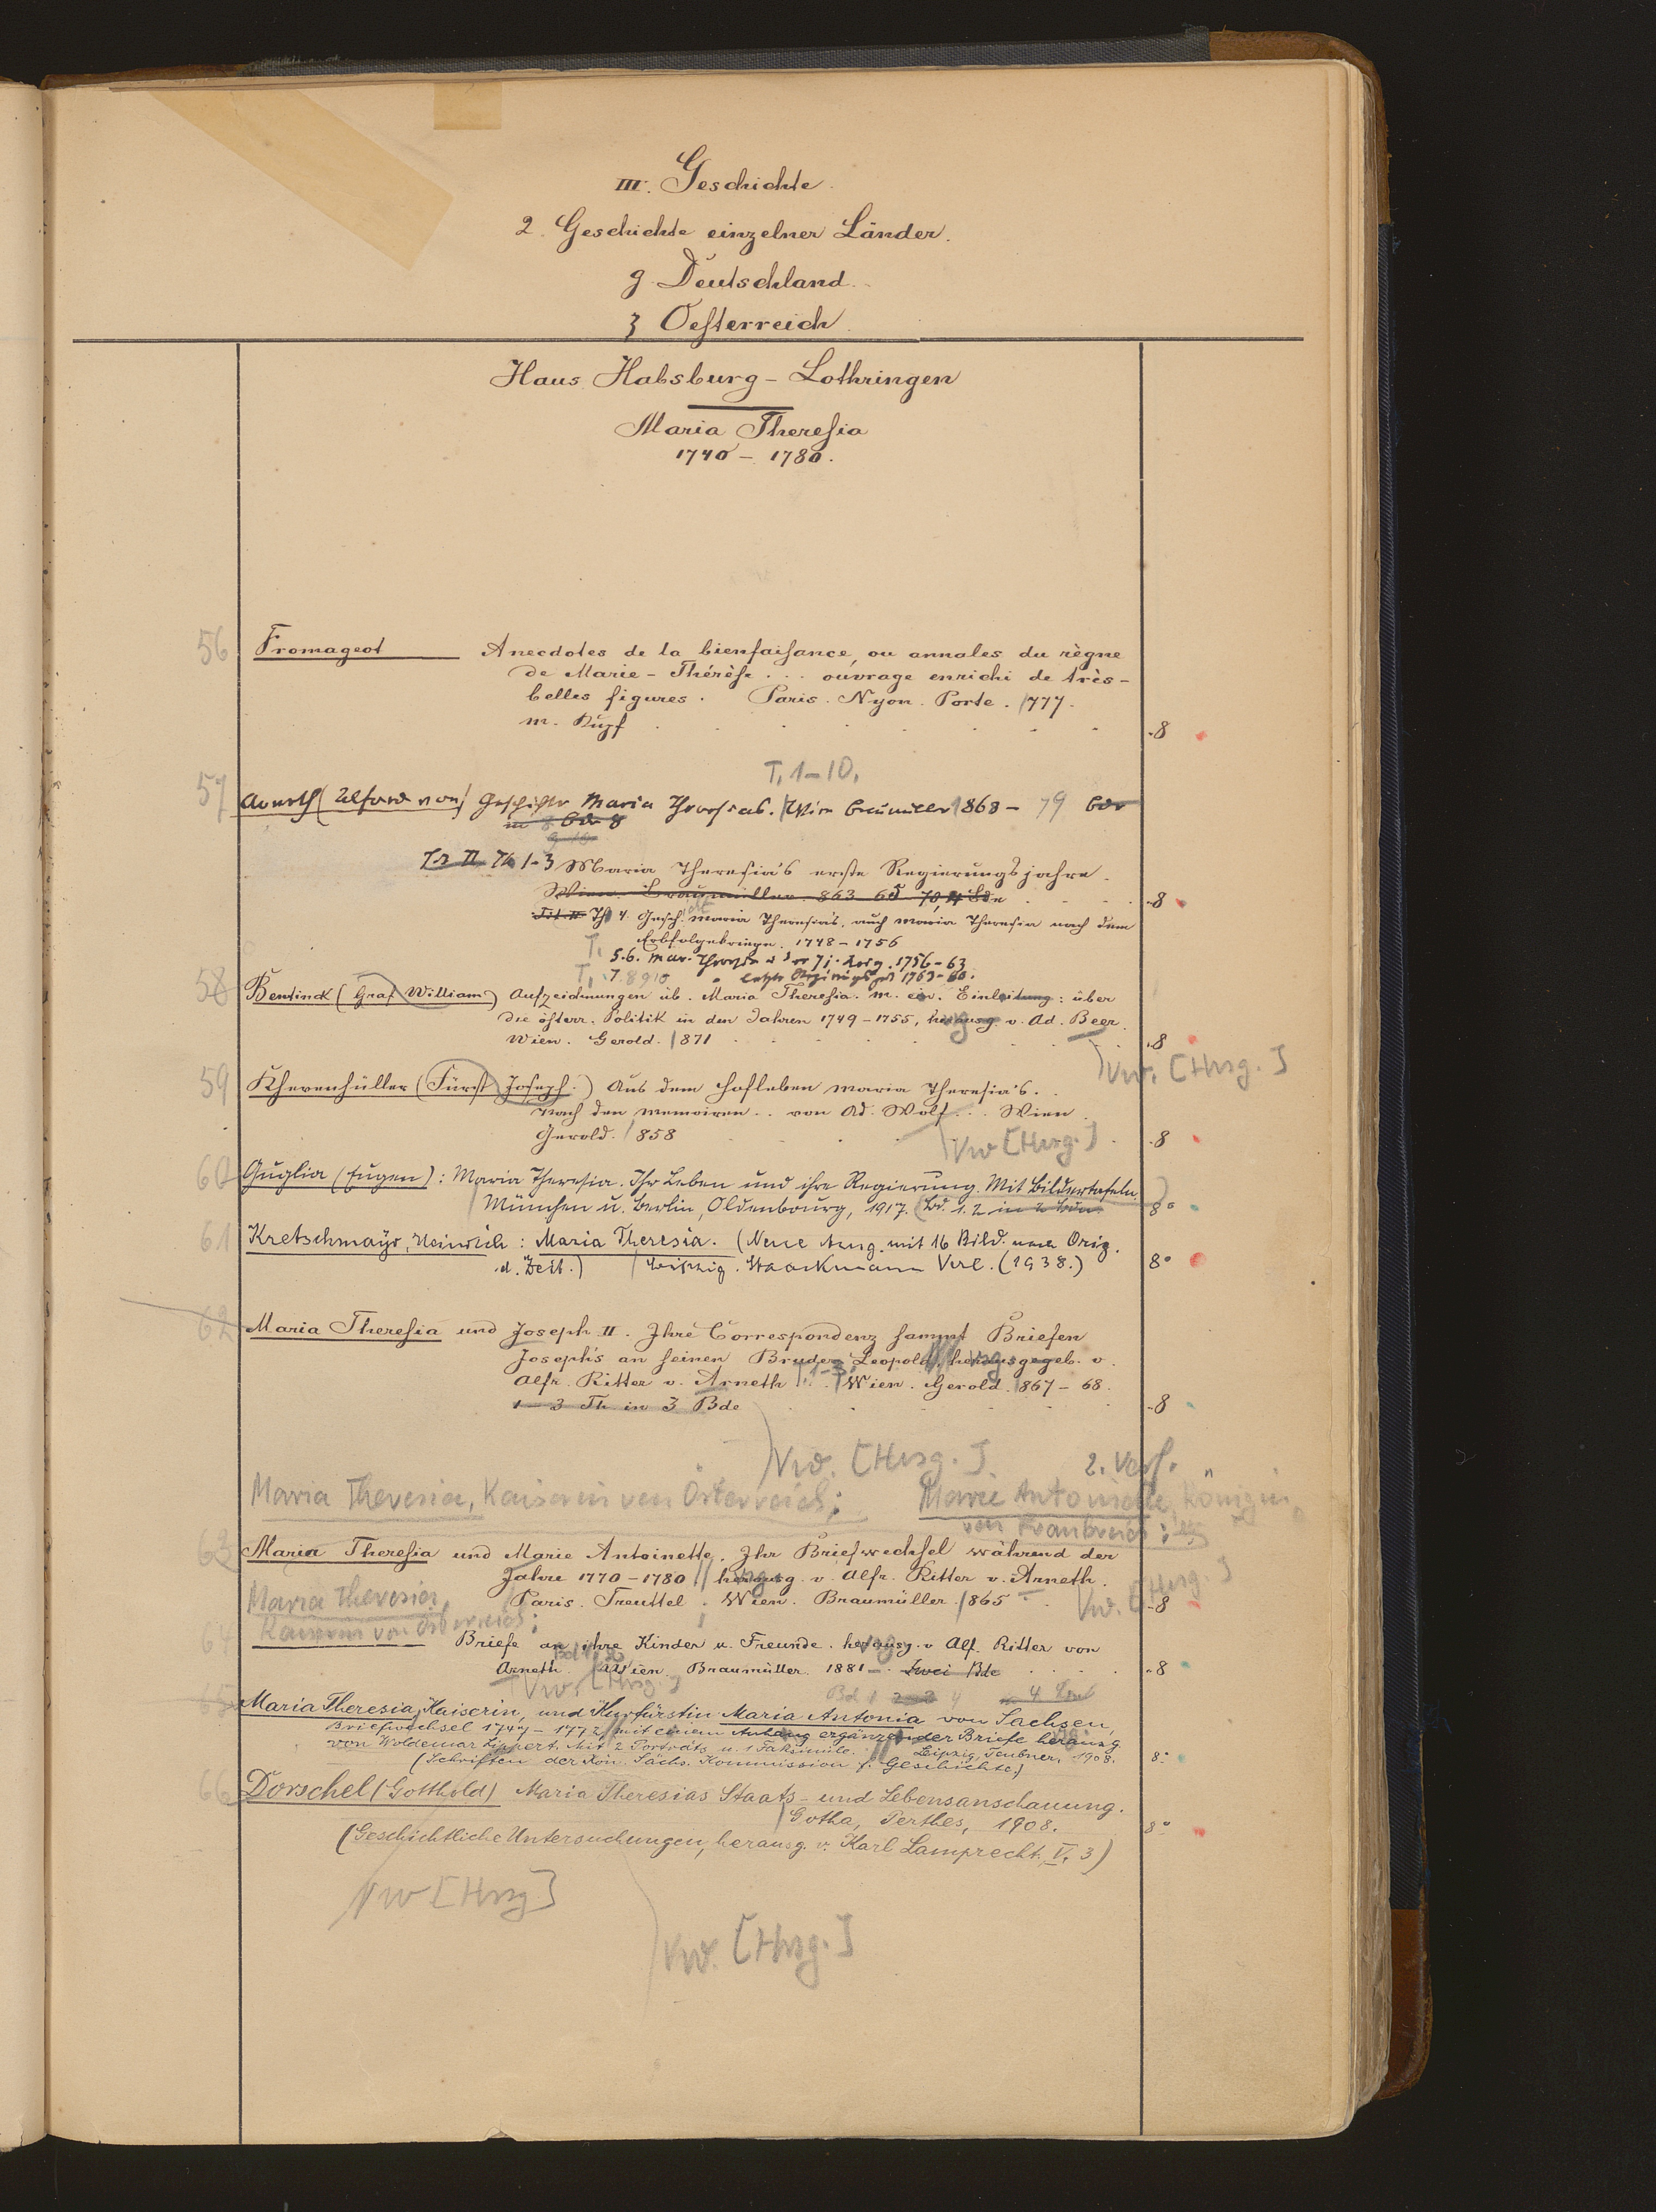 III. Geschichte.
2. Geschichte einzelner Länder.
g Deutschland.
ʒ Oesterreich.
Haus Habsburg - Lothringen
Maria Theresia
1740 - 1780.
56 Fromageot Anecdotes de la bienfaisance, ou annales du règne
de Marie - Thérèse . . . ouvrage enrichi de très-
belles figures . Paris . Nyon . Porte . 1777.
m. Kupf . . . . . . . 8
T. 1-10.
57 Arneth (Alfred von) Geschichte Maria Theresias. Wien Braumüller 1868 - 79
Th 1-3 Maria Theresia's erste Regierungsjahre.
Wien. Braumüller. 863 70, 4 Bde . . . 8
Th 4. Gesch. Maria Theresia's, auch Maria Theresia nach dem
Erbfolgekriege. 1748 - 1756
T. 5.6. Mar. Theresia u. der 7j. Krieg. 1756-63
T. 7. 8 9 10 " letzte Regierungszeit 1763-80.
58 Bentinck (Graf William) Aufzeichnungen üb. Maria Theresia. m. ein. Einleitung: über
die österr. Politik in den Jahren 1749 - 1755, herausg. v. Ad. Beer.
Wien. Gerold. 1871 . . . . . 8
Vw. [Hrsg.]
59 Khevenhüller (Fürst Joseph.) Aus dem Hofleben Maria Theresia's. .
Nach den Memoiren . . von Ad. Wolf . . . Wien.
Gerold. 1858 . . . 8
Vw [Hrsg.]
60 Guglia (Eugen): Maria Theresia. Ihr Leben und ihre Regierung. Mit Bildertafeln.
München u. Berlin, Oldenbourg, 1917. (Bd. 1. 2 8°
61 Kretschmayr, Heinrich: Maria Theresia. (Neue Ausg. mit 16 Bild. nach Orig.
d. Zeit.) Leipzig. Staackmann Verl. (1938.) 8°
62 Maria Theresia und Joseph II. Ihre Correspondenz sammt Briefen
Joseph's an seinen Bruder Leopold, herausgegeb. v.
Alfr. Ritter v. Arneth T. 1-3. Wien. Gerold. 1867 - 68.
1 - 3 Th. in 3 Bde . . . . . 8
Vw. [Hrsg.] 2. Verf.
Maria Theresia, Kaiserin von Österreich; Marie Antoinette, Königin
von Frankreich;
63 Maria Theresia und Marie Antoinette. Ihr Briefwechsel während der
Jahre 1770 - 1780 herausg. v. Alfr. Ritter v. Arneth.
Paris. Treuttel; Wien. Braumüller. 1865 8
Vw. [Hrsg]
Maria Theresia,
Kaiserin von Österreich;
64 Briefe an ihre Kinder u. Freunde. herausg. v Alf. Ritter von
Arneth. Wien. Braumüller. 1881 - Zwei Bde . . . 8
Vw. [Hrsg.]
65 Maria Theresia, Kaiserin, und Kurfürstin Maria Antonia von Sachsen,
Briefwechsel 1747 - 1772, mit einem Anhang ergänzender Briefe herausg
von Woldemar Lippert. Mit 2 Porträts u. 1 Faksimile. Leipzig, Teubner, 1908. 8°
(Schriften der Kön. Sächs. Kommission f. Geschichte.)
66 Dorschel (Gotthold) Maria Theresias Staats- und Lebensanschauung.
Gotha, Perthes, 1908. 8°
(Geschichtliche Untersuchungen, herausg. v. Karl Lamprecht. V, 3)
Vw [Hrsg]
Vw. [Hrsg.]